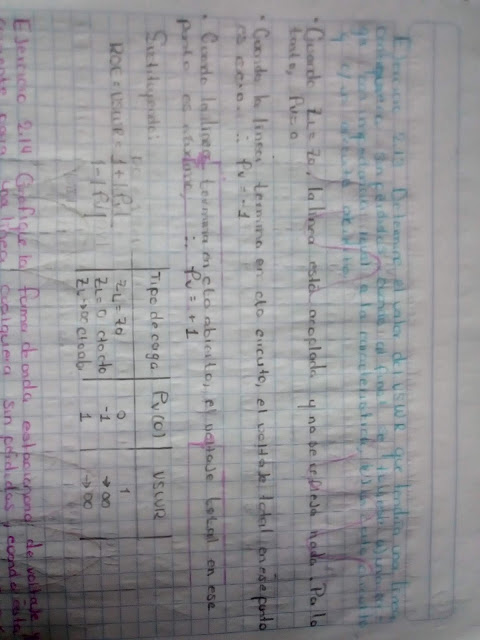 Ejercicio 2.13 Determine el valor del VSWR que tendría una línea
cualquiera sin pérdidas cuando al final se
carga con impedancia igual a la característica, circuito
y circuito abierto
• Cuando ZL = Z0, la línea está acoplada y no se refleja nada. Por lo
tanto, ρv = 0
• Cuando la línea termina en cto circuito, el voltaje total en ese punto
es cero ∴ ρv = -1
• Cuando la línea termina en cto abierto, el voltaje total en ese
punto es ∴ ρv = +1
Sustituyendo:
ROE = VSWR = 1+|ρv|
1-|ρv|
Tipo de carga | ρv(0) | VSWR
ZL = Z0 | 0 | 1
ZL = 0 cto cto | -1 | → ∞
ZL → ∞ cto ab | 1 | → ∞
Ejercicio 2.14 Grafique la forma de onda estacionaria de voltaje y
corriente para una línea cualquiera sin pérdidas, cuando está